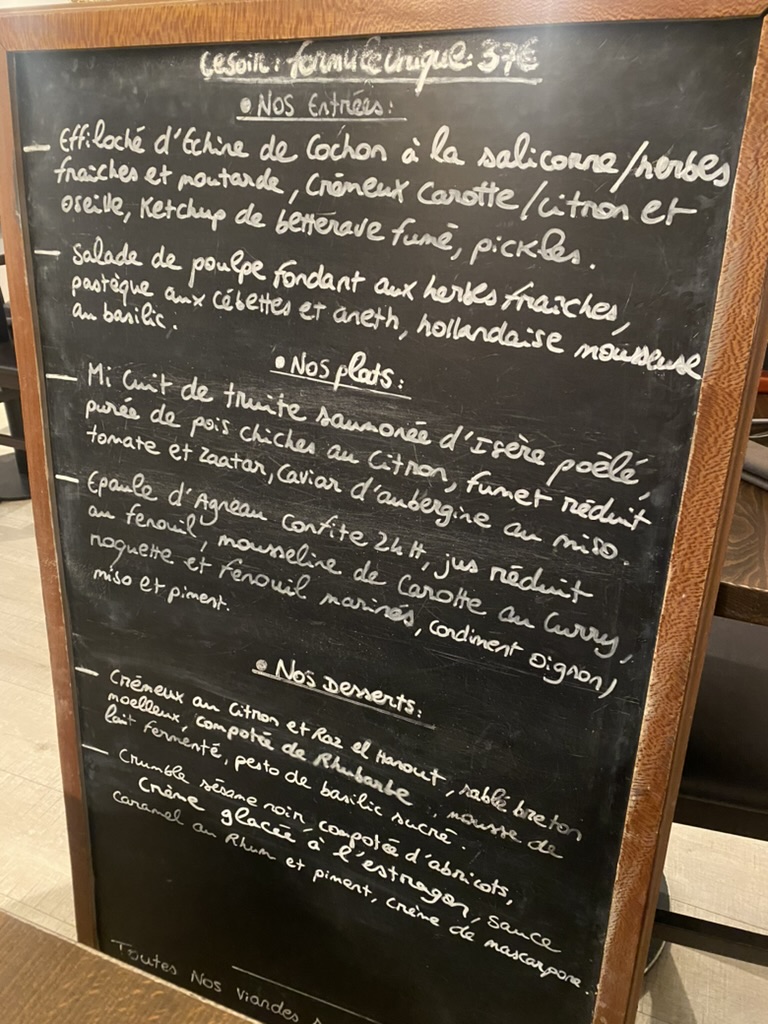 Ce soir : formule unique : 37€
• Nos Entrées :
— Effiloché d'Echine de Cochon à la salicorne/herbes
fraiches et moutarde, Crémeux Carotte/citron et
oseille, Ketchup de betterave fumé, pickles.
— Salade de poulpe fondant aux herbes fraiches,
pastèque aux cébettes et aneth, hollandaise mousseuse
au basilic.
• Nos plats :
— Mi Cuit de truite saumonée d'Isère poêlé,
purée de pois chiches au Citron, fumet réduit
tomate et Zaatar, Caviar d'aubergine au miso.
— Epaule d'Agneau Confite 24H, jus réduit
au fenouil, mousseline de Carotte au Curry,
roquette et fenouil marinés, Condiment oignon,
miso et piment.
• Nos Desserts :
— Crémeux au Citron et Raz el Hanout, sablé breton
moelleux, compotée de Rhubarbe, mousse de
lait fermenté, pesto de basilic sucré.
— Crumble sésame noir, compotée d'abricots,
Crème glacée à l'estragon, sauce
caramel au Rhum et piment, crème de mascarpone.
Toutes Nos viandes